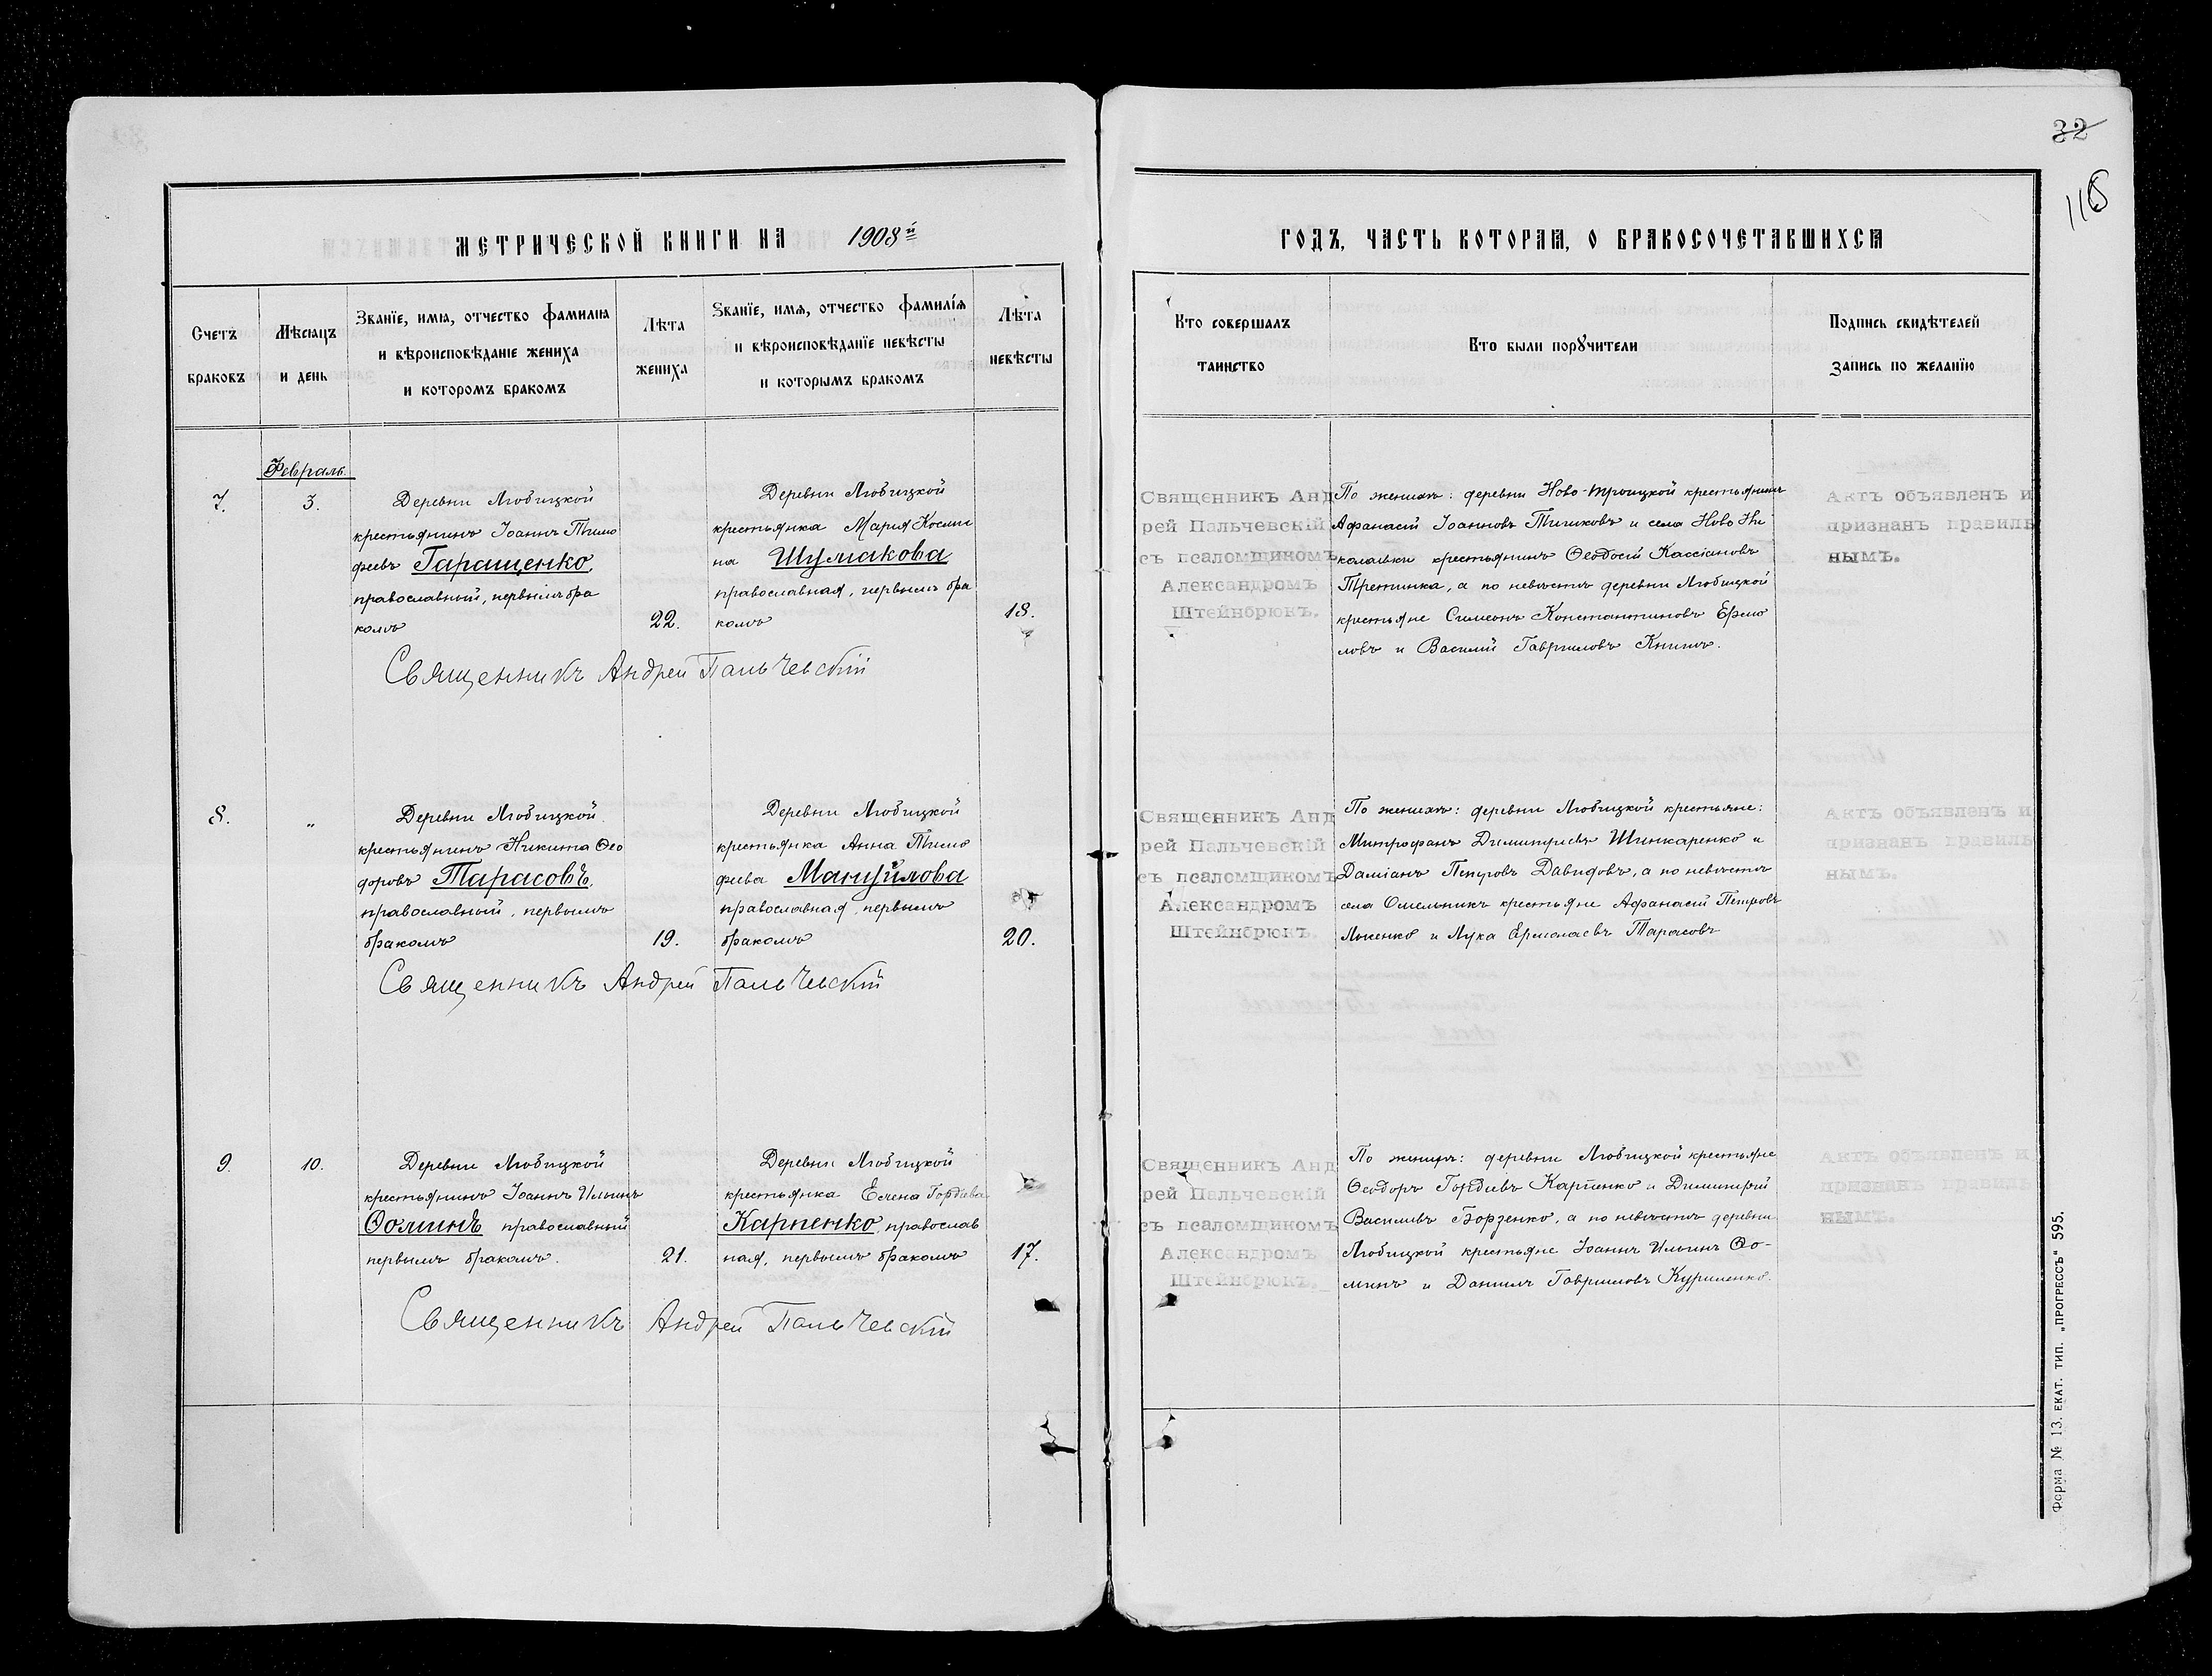 32
116
МЕТРИЧЕСКОЙ КНИГИ НА 1908й
ГОДЪ, ЧАСТЬ ВТОРАЯ, О БРАКОСОЧЕТАВШИХСЯ
Счетъ
браковъ
Мѣсяцъ
и день
Званїе, имя, отчество фамилия
и вѣроисповѣданїе жениха
и которомъ бракомъ
Лѣта
жениха
Званїе, имя, отчество фамилїя
и вѣроисповѣданїе невѣсты
и которымъ бракомъ
Лѣта
невѣсты
Кто совершалъ
таинство
Кто были порꙋчители
Подпись свидѣтелей
Запись по желанїю
Февраль.
7.
3.
Деревни Любицкой
крестьянинъ Іоаннъ Тимо
феевъ Гаращенко,
православный, первымъ бра
комъ
22.
Деревни Любицкой
крестьянка Мария Косми
на Шумакова
православная, первымъ бра
комъ
18.
Священникъ Андрей Пальчевскій
Священникъ Анд
рей Пальчевскій
съ псаломщикомъ
Александромъ
Штейнбрюкъ.
По женихѣ: деревни Ново-Троицкой крестьянинъ
Афанасій Іоанновъ Тишковъ и села Ново Ни
колаевки крестьянинъ Ѳеодосій Кассіановъ
Третинка, а по невѣстѣ деревни Любицкой
крестьяне Симеонъ Константиновъ Ермо
ловъ и Василій Гавриловъ Книшъ.
Актъ объявленъ и
признанъ правиль
нымъ.
8.
„
Деревни Любицкой
крестьянинъ Никита Ѳео
доровъ Тарасовъ,
православный, первымъ
бракомъ
19.
Деревни Любицкой
крестьянка Анна Тимо
феева Мануйлова
православная, первымъ
бракомъ
20.
Священникъ Андрей Пальчевскій
Священникъ Анд
рей Пальчевскій
съ псаломщикомъ
Александромъ
Штейнбрюкъ.
По женихѣ: деревни Любицкой крестьяне:
Митрофанъ Димитріевъ Шинкаренко и
Даміанъ Петровъ Давидовъ, а по невѣстѣ
села Омельникъ крестьяне Афанасій Петровъ
и Лука Ермолаевъ Тарасовъ
Актъ объявленъ и
признанъ правиль
нымъ.
9.
10.
Деревни Любицкой
крестьянинъ Іоаннъ Ильинъ
Ѳоминъ православный
первымъ бракомъ.
21.
Деревни Любицкой
крестьянка Елена Гордіева
Карпенко, православ
ная, первымъ бракомъ
17.
Священникъ Андрей Пальчевскій
Священникъ Анд
рей Пальчевскій
съ псаломщикомъ
Александромъ
Штейнбрюкъ.
По женихѣ: деревни Любицкой крестьяне
Ѳеодоръ Гордіевъ Карпенко и Димитрій
Василіевъ Борзенко, а по невѣстѣ деревни
Любицкой крестьяне Іоаннъ Ильинъ Ѳо-
минъ и Даніилъ Гавриловъ Куриленко.
Актъ объявленъ и
признанъ правиль
нымъ.
Форма № 13. ЕКАТ. ТИП. „ПРОГРЕССЪ“ 595.